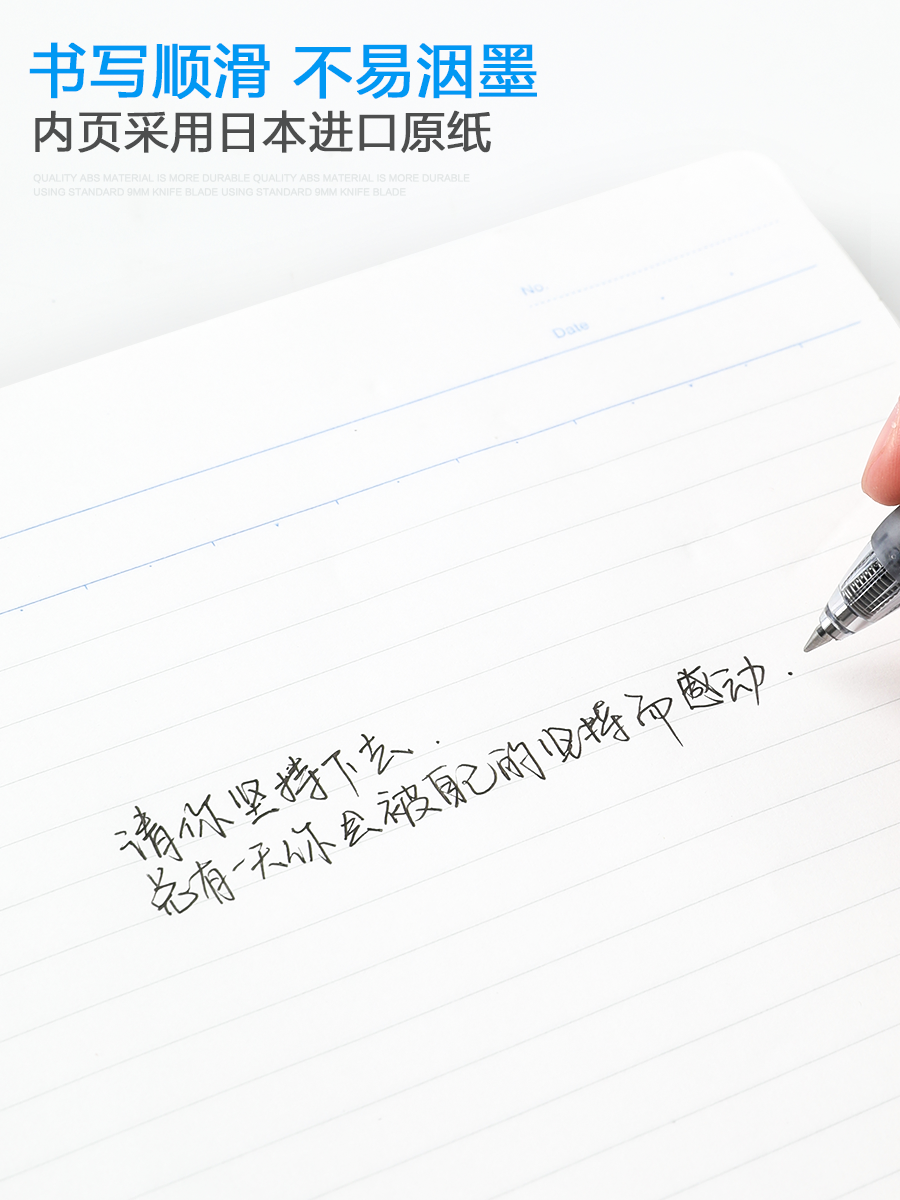 书写顺滑 不易洇墨
内页采用日本进口原纸
QUALITY ABS MATERIAL IS MORE DURABLE QUALITY ABS MATERIAL IS MORE DURABLE
USING STANDARD 9MM KNIFE BLADE USING STANDARD 9MM KNIFE BLADE
No.
Date
请你坚持下去.
总有一天你会被自己的坚持而感动.